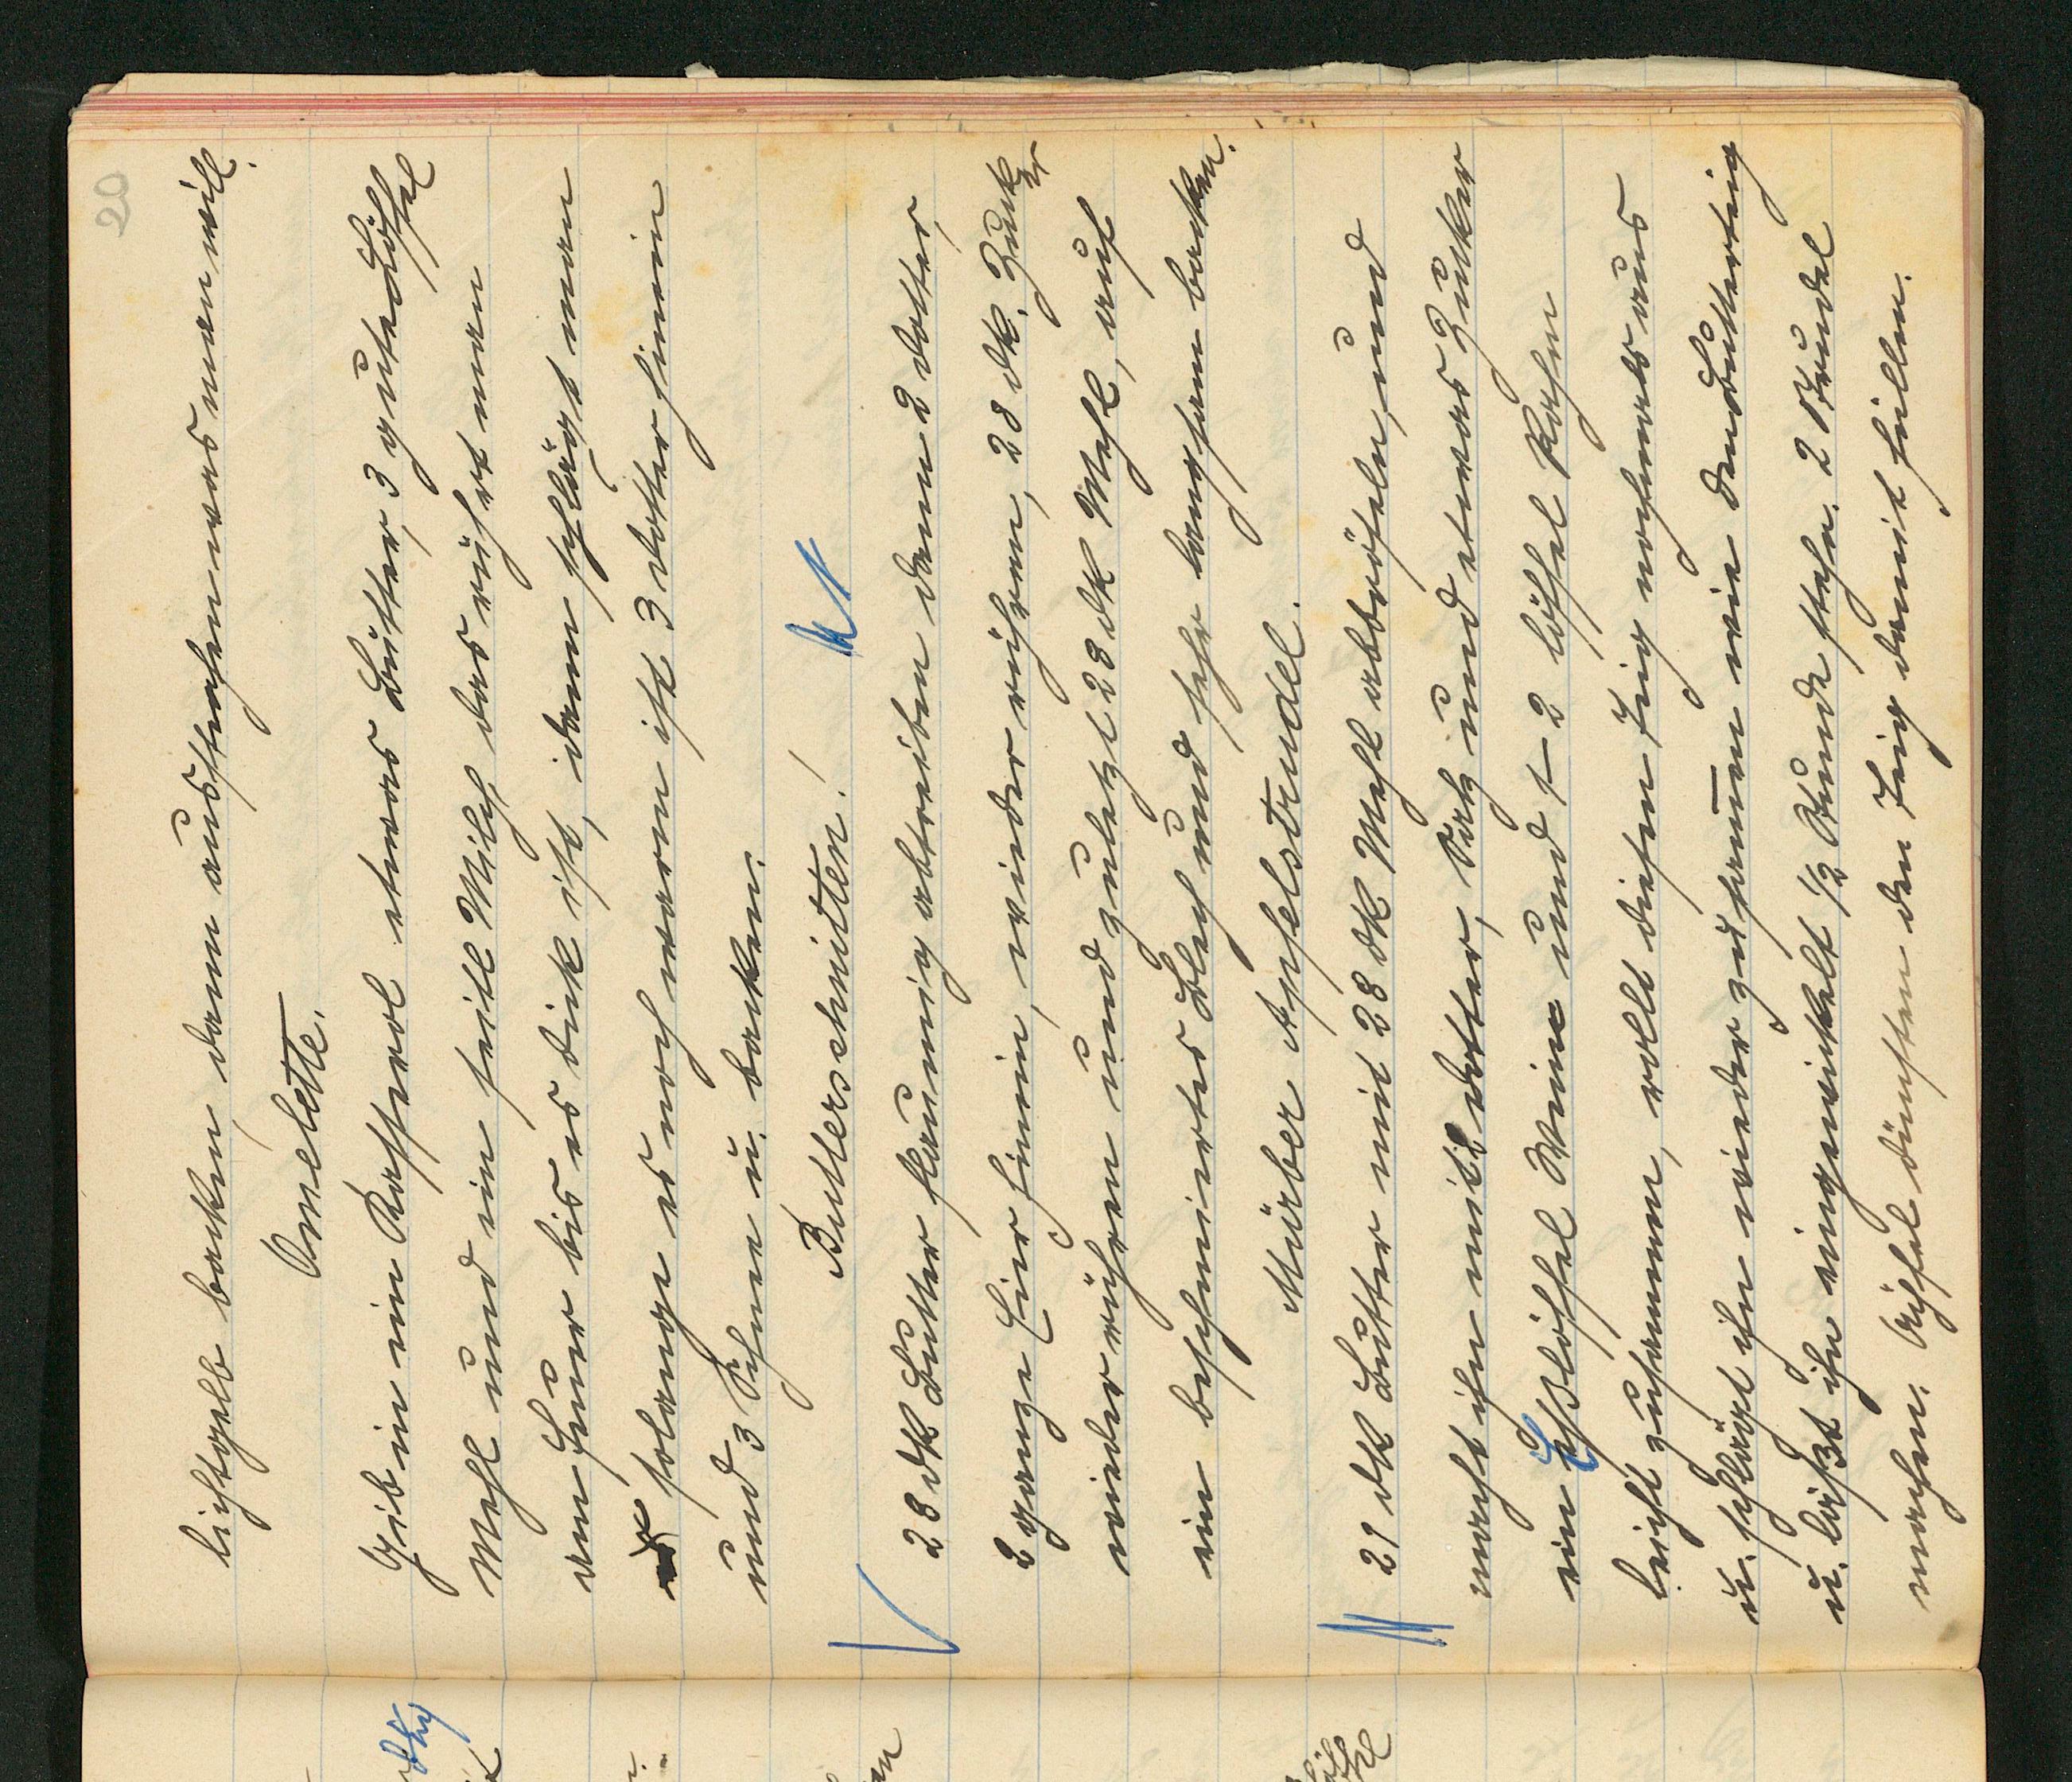 20
lichtgelb backen, dann aus stechen was man will.
Omelette.
Gib in ein Kasserol etwas Butter, 3 gute Löffel
Mehl und ein seitl Milch das rührt man
am Feuer bis es dick ist, dann schlägt man
solange es noch warm ist 3 Dotter hinein
und 3 Schnee u. backen.
Butterschnitten!
28 dk Butter flaumig abtreiben dann 2 Dotter,
2 ganze Eier hinein, wieder rühren, 28 dk. Zucker
wieder rühren und zuletzt 28 dk Mehl, auf
ein beschmiertes Blech und sehr langsam backen.
Mürber Apfelstrudel.
21 dk Butter mit 28 dk Mehl abbröseln, und
macht ihn mit 2 Dotter, Salz und etwas Zucker
ein Esslöffel Wein und 1–2 Löffel Rahm
leicht zusammen, rollt diesen Teig nochmals aus
u. schlägt ihn wieder zusam̄en wie den Butterteig
u. lässt ihn eingewickelt ½ Stunde stehn. 2 Strudel
machen. Äpfel dünsten den Teig damit füllen.